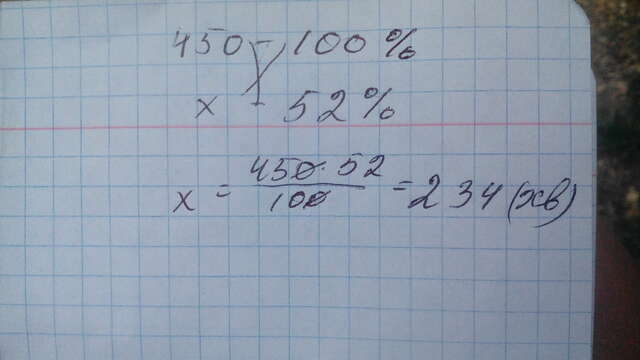 450 - 100 %
x - 52 %
x = 450 · 52 / 100 = 234 (хв)